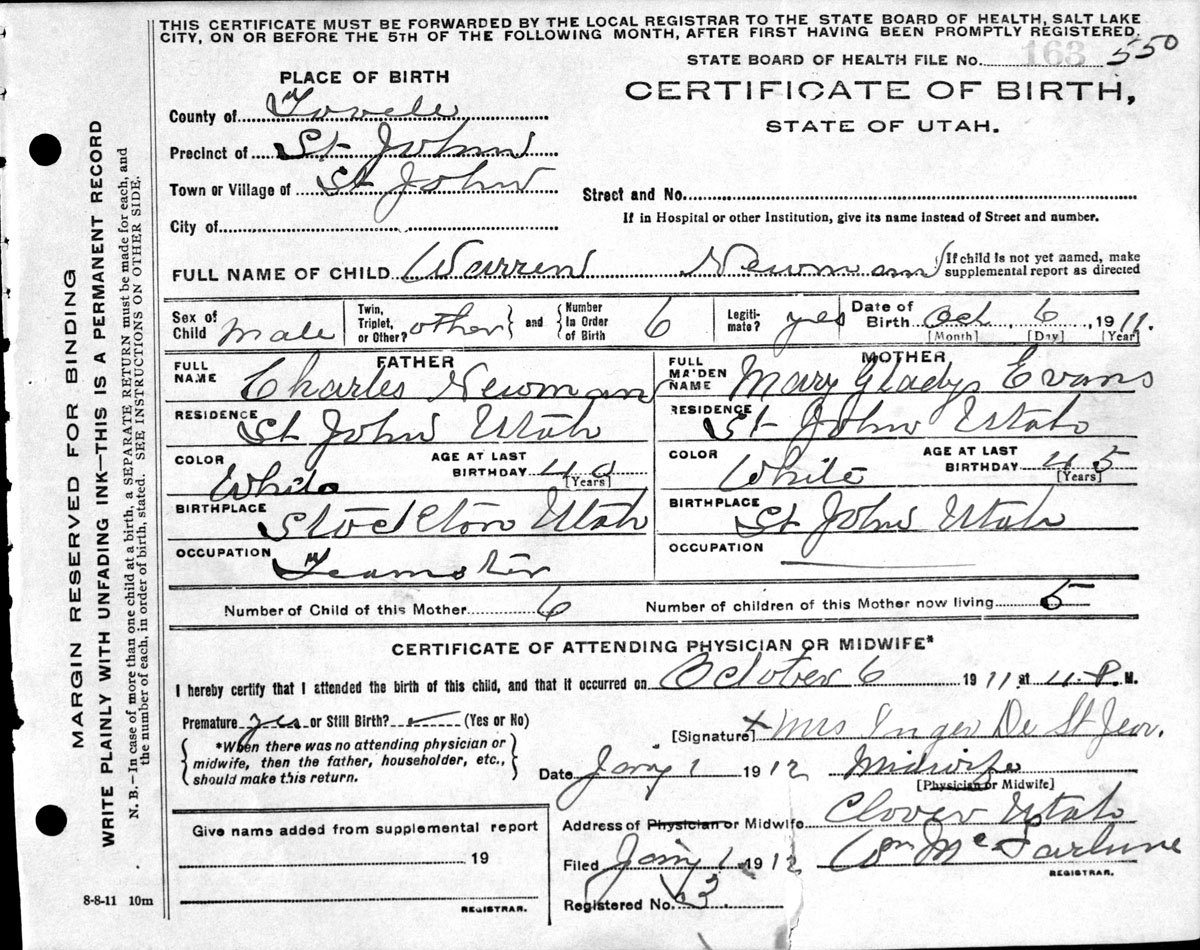 THIS CERTIFICATE MUST BE FORWARDED BY THE LOCAL REGISTRAR TO THE STATE BOARD OF HEALTH, SALT LAKE
CITY, ON OR BEFORE THE 5TH OF THE FOLLOWING MONTH, AFTER FIRST HAVING BEEN PROMPTLY REGISTERED.
STATE BOARD OF HEALTH FILE No. 163 550
PLACE OF BIRTH
CERTIFICATE OF BIRTH,
STATE OF UTAH.
County of Tooele
Precinct of St Johns
Town or Village of St John
Street and No.
If in Hospital or other Institution, give its name instead of Street and number.
City of
FULL NAME OF CHILD Warren Newman
If child is not yet named, make
supplemental report as directed
Sex of Child male
Twin, Triplet, or Other? other and Number in Order of Birth 6
Legiti-mate? yes
Date of Birth Oct, 6, 1911.
[Month] [Day] [Year]
FATHER
MOTHER
FULL NAME Charles Newman
FULL MAIDEN NAME Mary Gladys Evans
RESIDENCE St John Utah
RESIDENCE St John Utah
COLOR White
AGE AT LAST BIRTHDAY 40 [Years]
COLOR White
AGE AT LAST BIRTHDAY 45 [Years]
BIRTHPLACE Stockton Utah
BIRTHPLACE St John Utah
OCCUPATION Teamster
OCCUPATION
Number of Child of this Mother 6
Number of children of this Mother now living 5
CERTIFICATE OF ATTENDING PHYSICIAN OR MIDWIFE*
I hereby certify that I attended the birth of this child, and that it occurred on October 6 1911 at 4 P. M.
Premature yes or Still Birth? (Yes or No)
*When there was no attending physician or
midwife, then the father, householder, etc.,
should make this return.
[Signature] x Mrs Inger De St Jeor.
Date Jany 1 1912 Midwife
[Physician or Midwife]
Give name added from supplemental report
19
REGISTRAR.
Address of Physician or Midwife Clover Utah
Filed Jany 1 1912 Wm McFarlune
REGISTRAR.
Registered No. 3
8-8-11 10m
MARGIN RESERVED FOR BINDING
WRITE PLAINLY WITH UNFADING INK—THIS IS A PERMANENT RECORD
N. B.—In case of more than one child at a birth, a SEPARATE RETURN must be made for each, and
the number of each, in order of birth, stated. SEE INSTRUCTIONS ON OTHER SIDE.